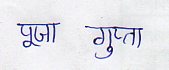 पूजा गुप्ता